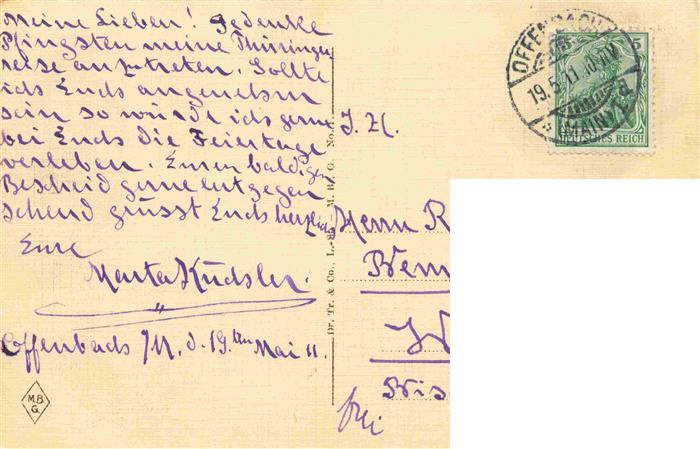 Meine Lieben! Gedenke
Pfingsten meine Thüringer
reise anzutreten. Sollte
ich Euch angenehm
sein so würde ich gerne
bei Euch die Feiertage
verleben. Euren baldigen
Bescheid gerne entgegen
sehend grüsst Euch herzlich
Eure
Marta
Offenbach /M, d. 19. ten Mai 11.
M.B.
G.
Dr. Tr. & Co., L.-85 – M. B. G. No.
Herrn R
OFFENBACH
19.5.11.
(MAIN)
5
DEUTSCHES REICH